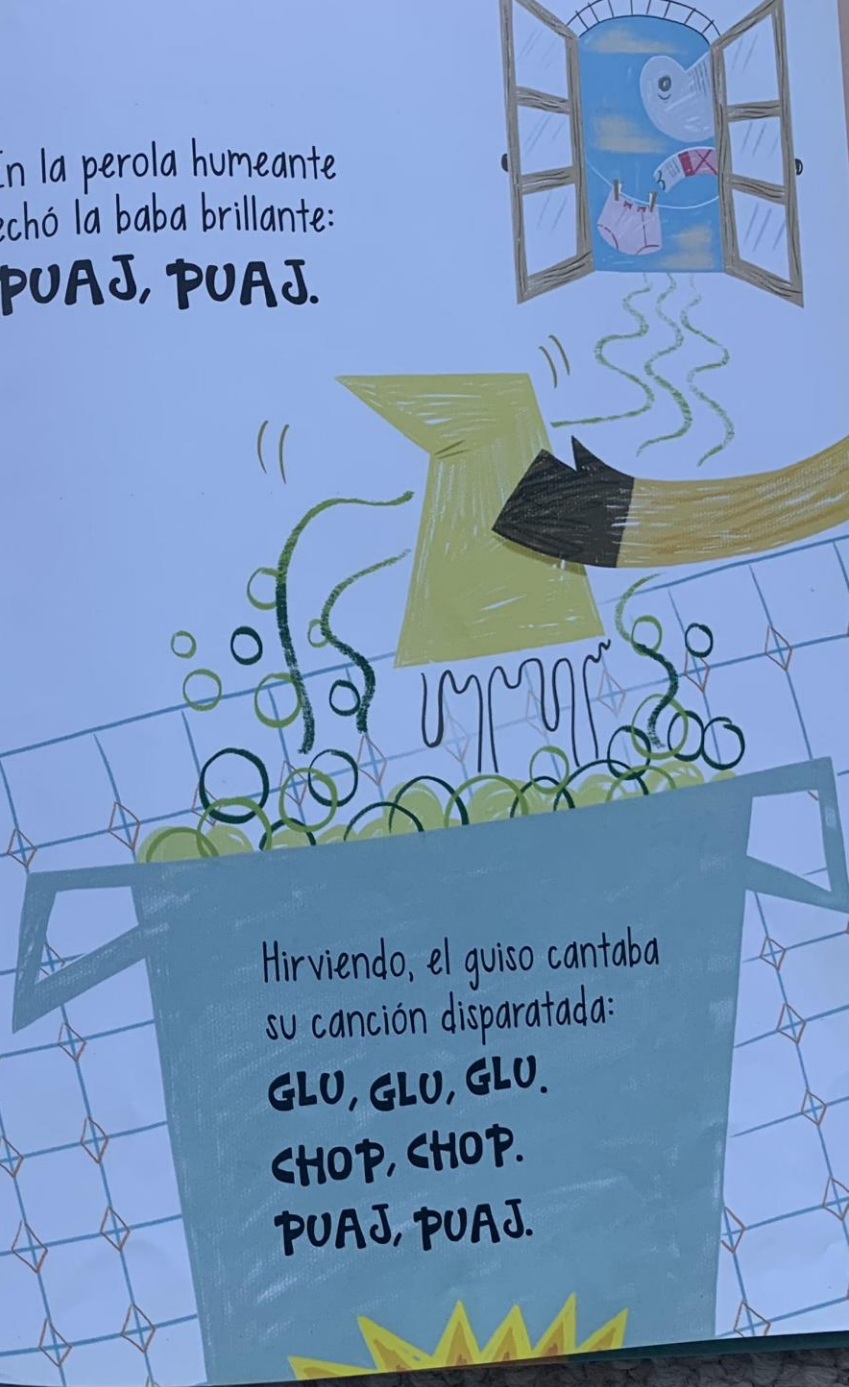 En la perola humeante
echó la baba brillante:
PUAJ, PUAJ.
Hirviendo, el guiso cantaba
su canción disparatada:
GLU, GLU, GLU.
CHOP, CHOP.
PUAJ, PUAJ.